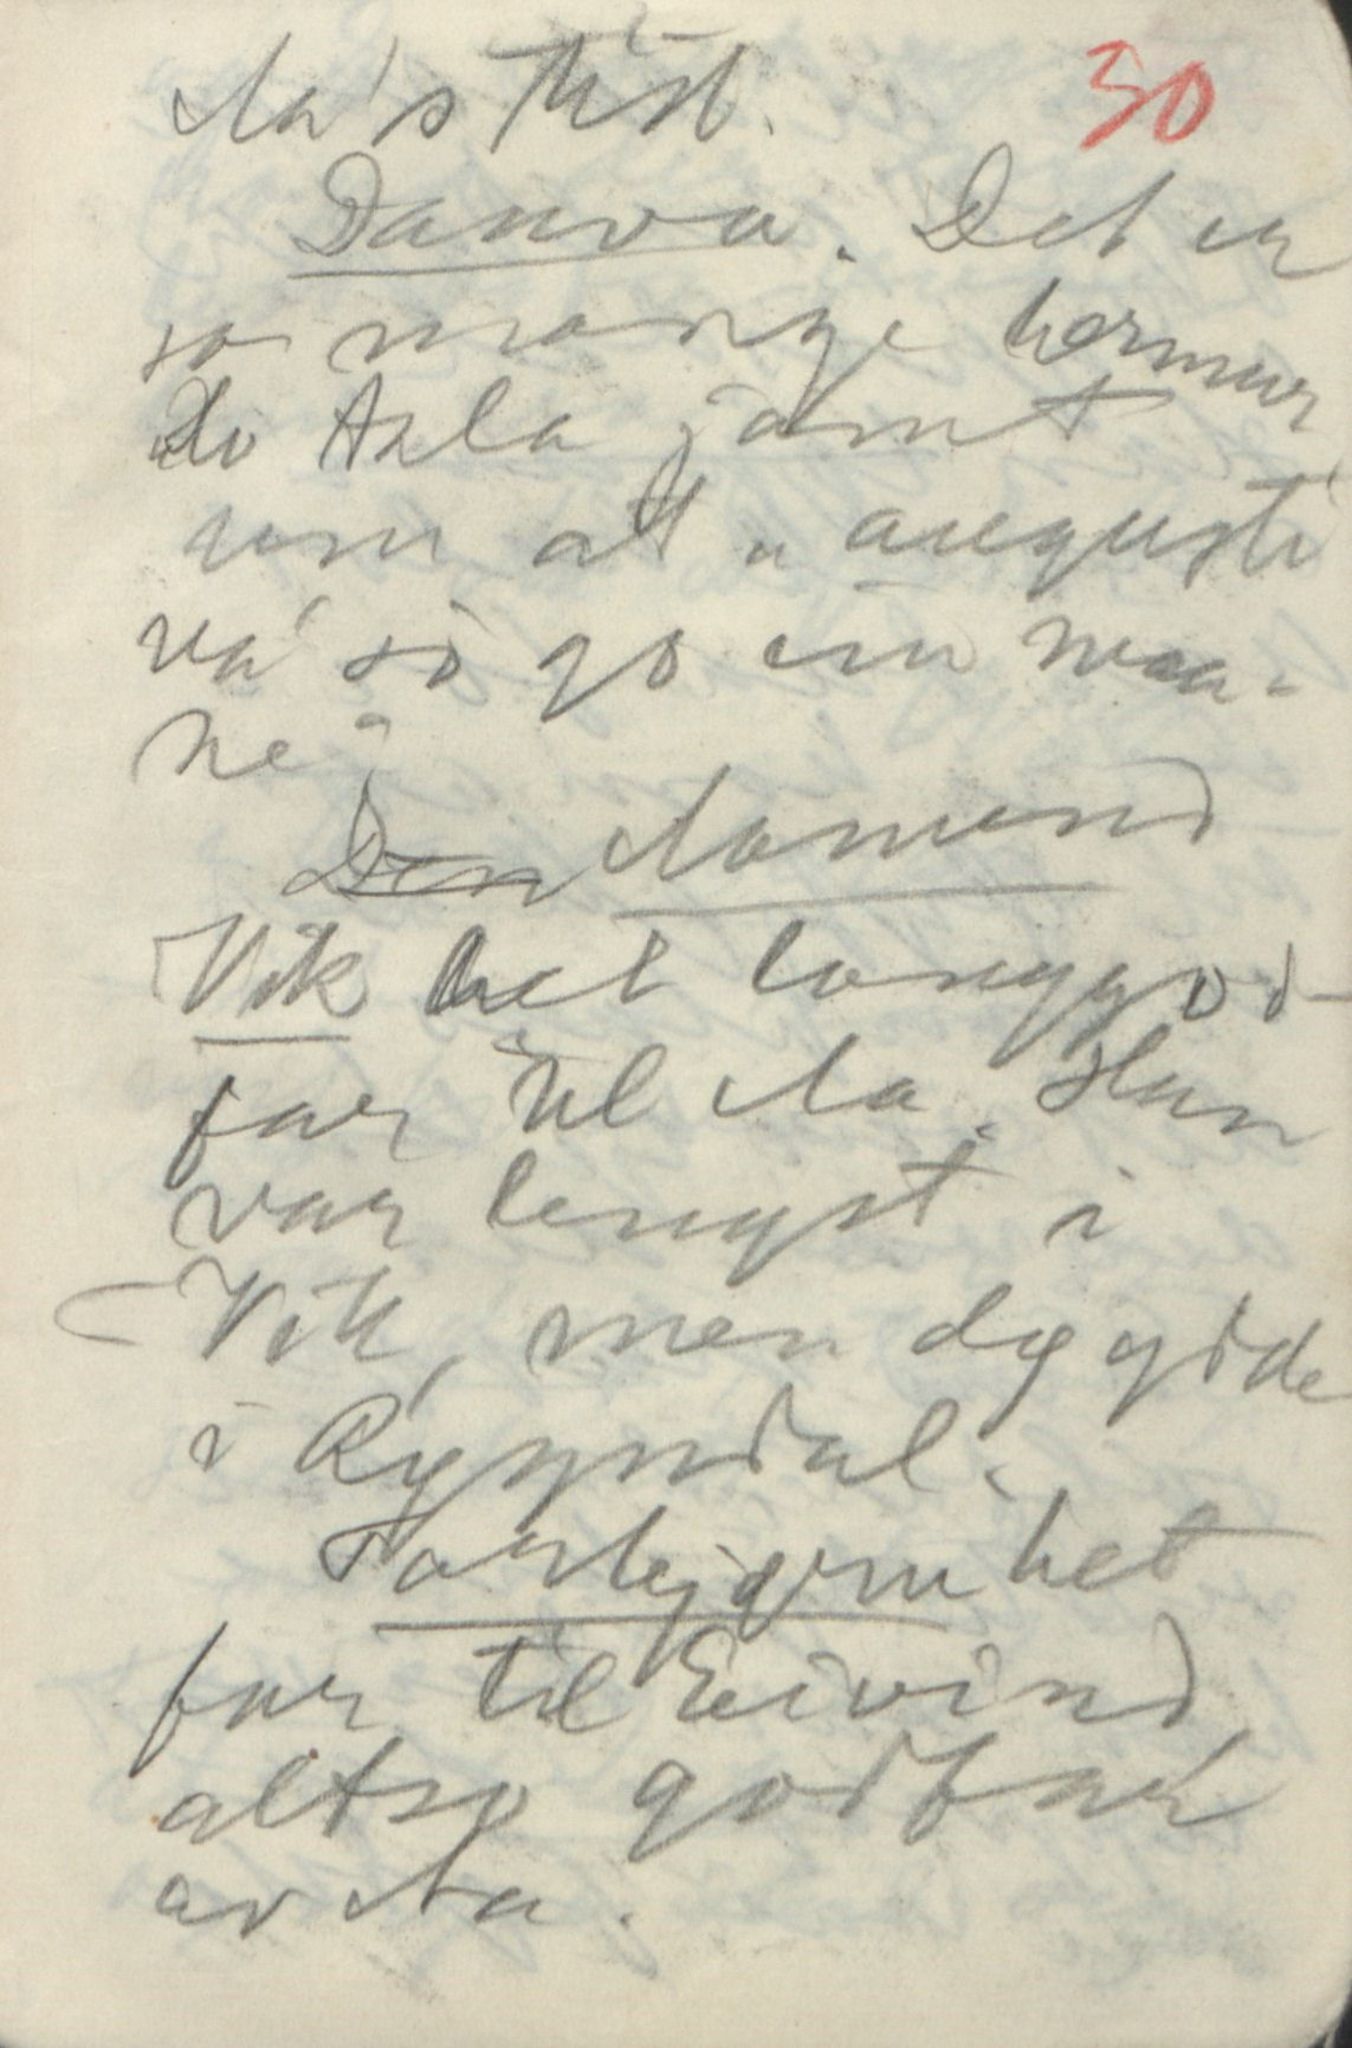 Aa's tist. 50
Danva. Det er
so mange hermur
do tala jamt
um att „augusti
va' so go ein maa-
ne"
Den Aamund
Vik het langgod-
far til Aa. Han
var lengst i
Vik, men døyde
i Rygndal.
Tarbjørn het
far til Eivind,
altso godfar
av Aa.